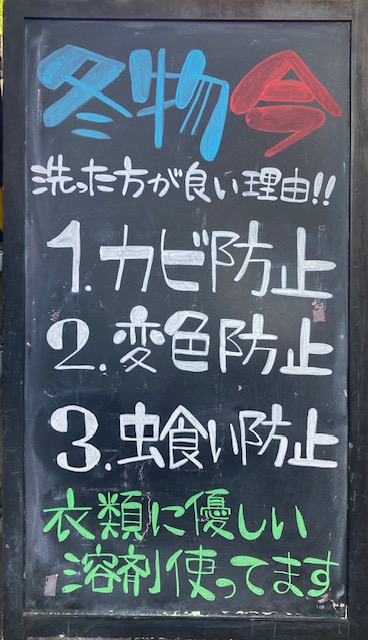 冬物今
洗った方が良い理由!!
1.カビ防止
2.変色防止
3.虫食い防止
衣類に優しい
溶剤使ってます